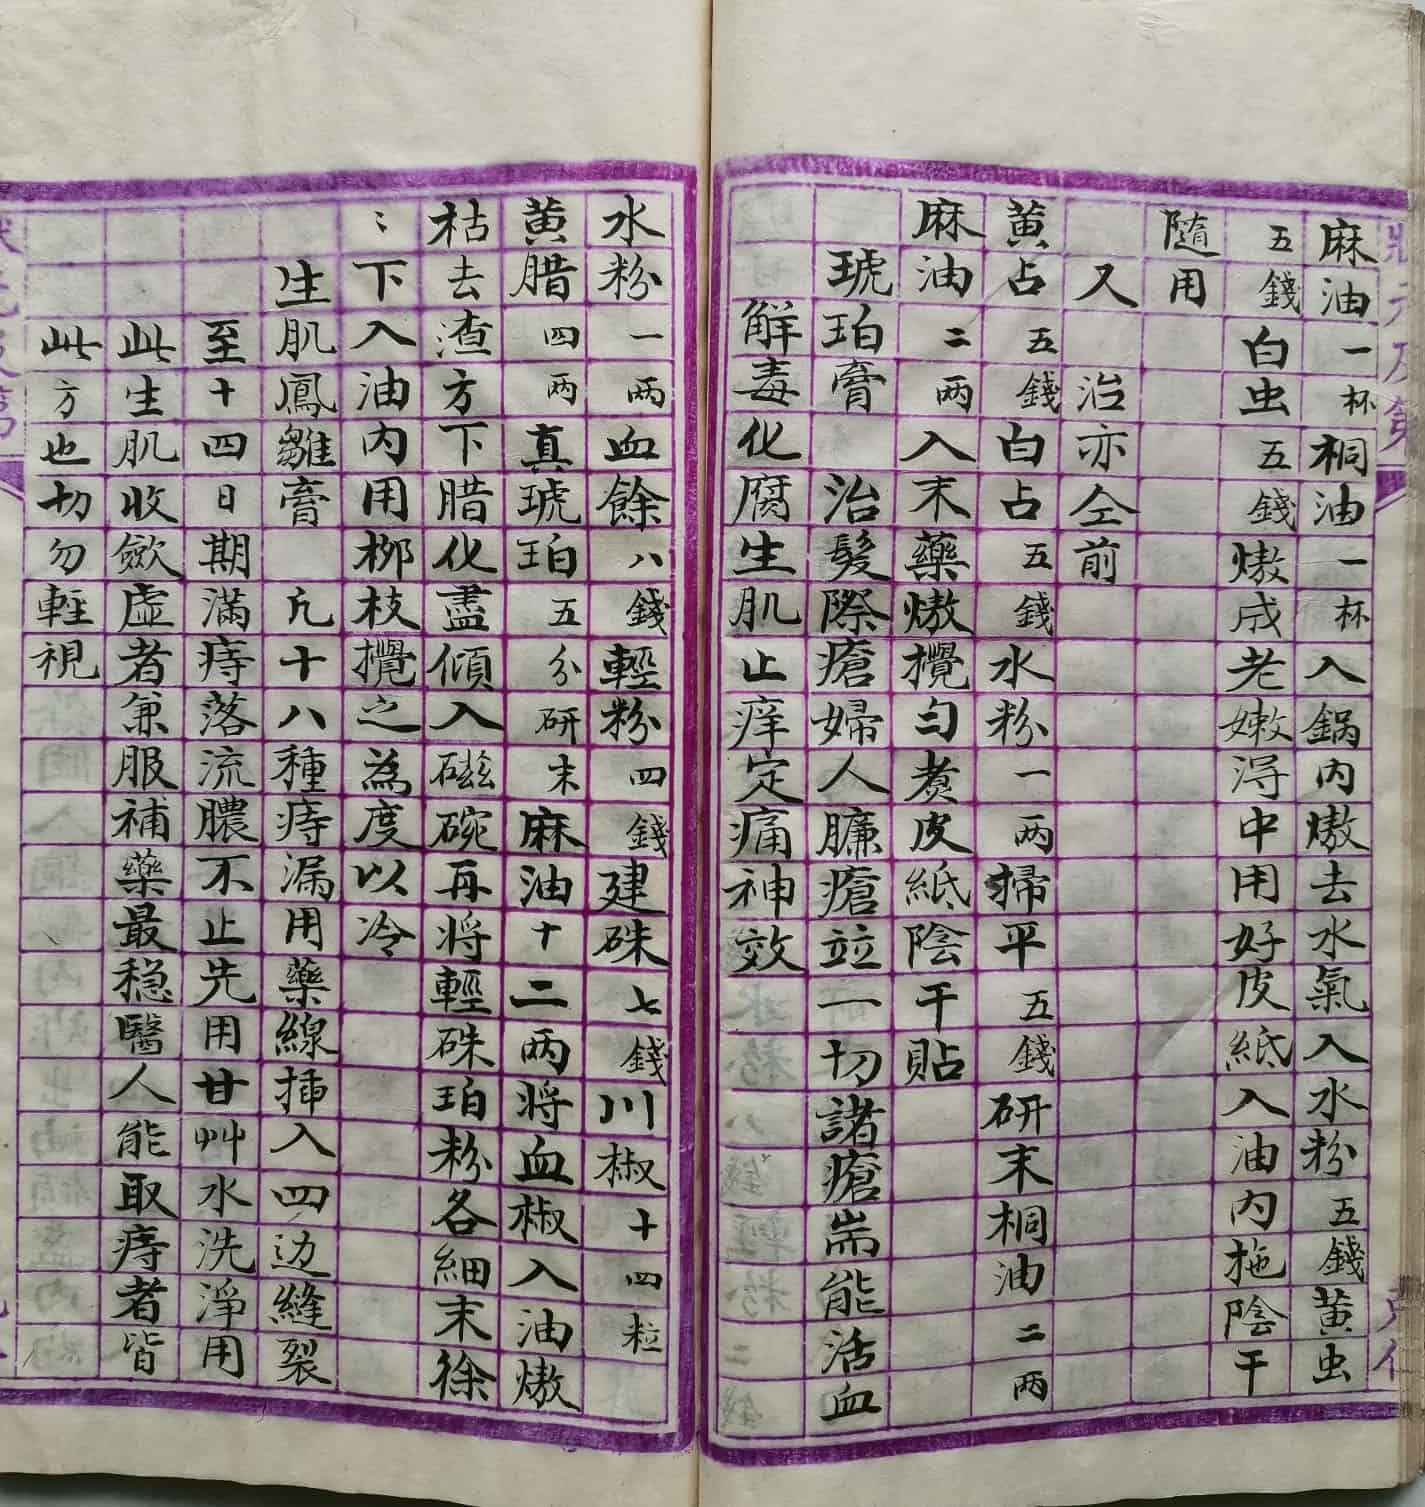 麻油一杯桐油一杯入鍋內熬去水氣入水粉五錢黃虫
五錢白虫五錢熬成老嫩淂中用好皮紙入油內拖陰干
隨用
又治亦仝前
黃占五錢白占五錢水粉一两掃平五錢研末桐油二两
麻油二两入末藥熬攪勻煑皮紙陰干貼
琥珀膏治髮際瘡婦人臁瘡竝一切諸瘡耑能活血
解毒化腐生肌止痒定痛神效
水粉一两血餘八錢輕粉四錢建硃七錢川椒十四粒
黃腊四两真琥珀五分研末麻油十二两將血椒入油熬
枯去渣方下腊化盡傾入磁碗再將輕硃珀粉各細末徐
〻下入油內用柳枝攪之為度以冷
生肌鳳雛膏凢十八種痔漏用藥線揷入四边縫裂
至十四日期滿痔落流膿不止先用甘艸水洗淨用
此生肌收歛虛者兼服補藥最穏醫人能取痔者皆
此方也切勿輕視